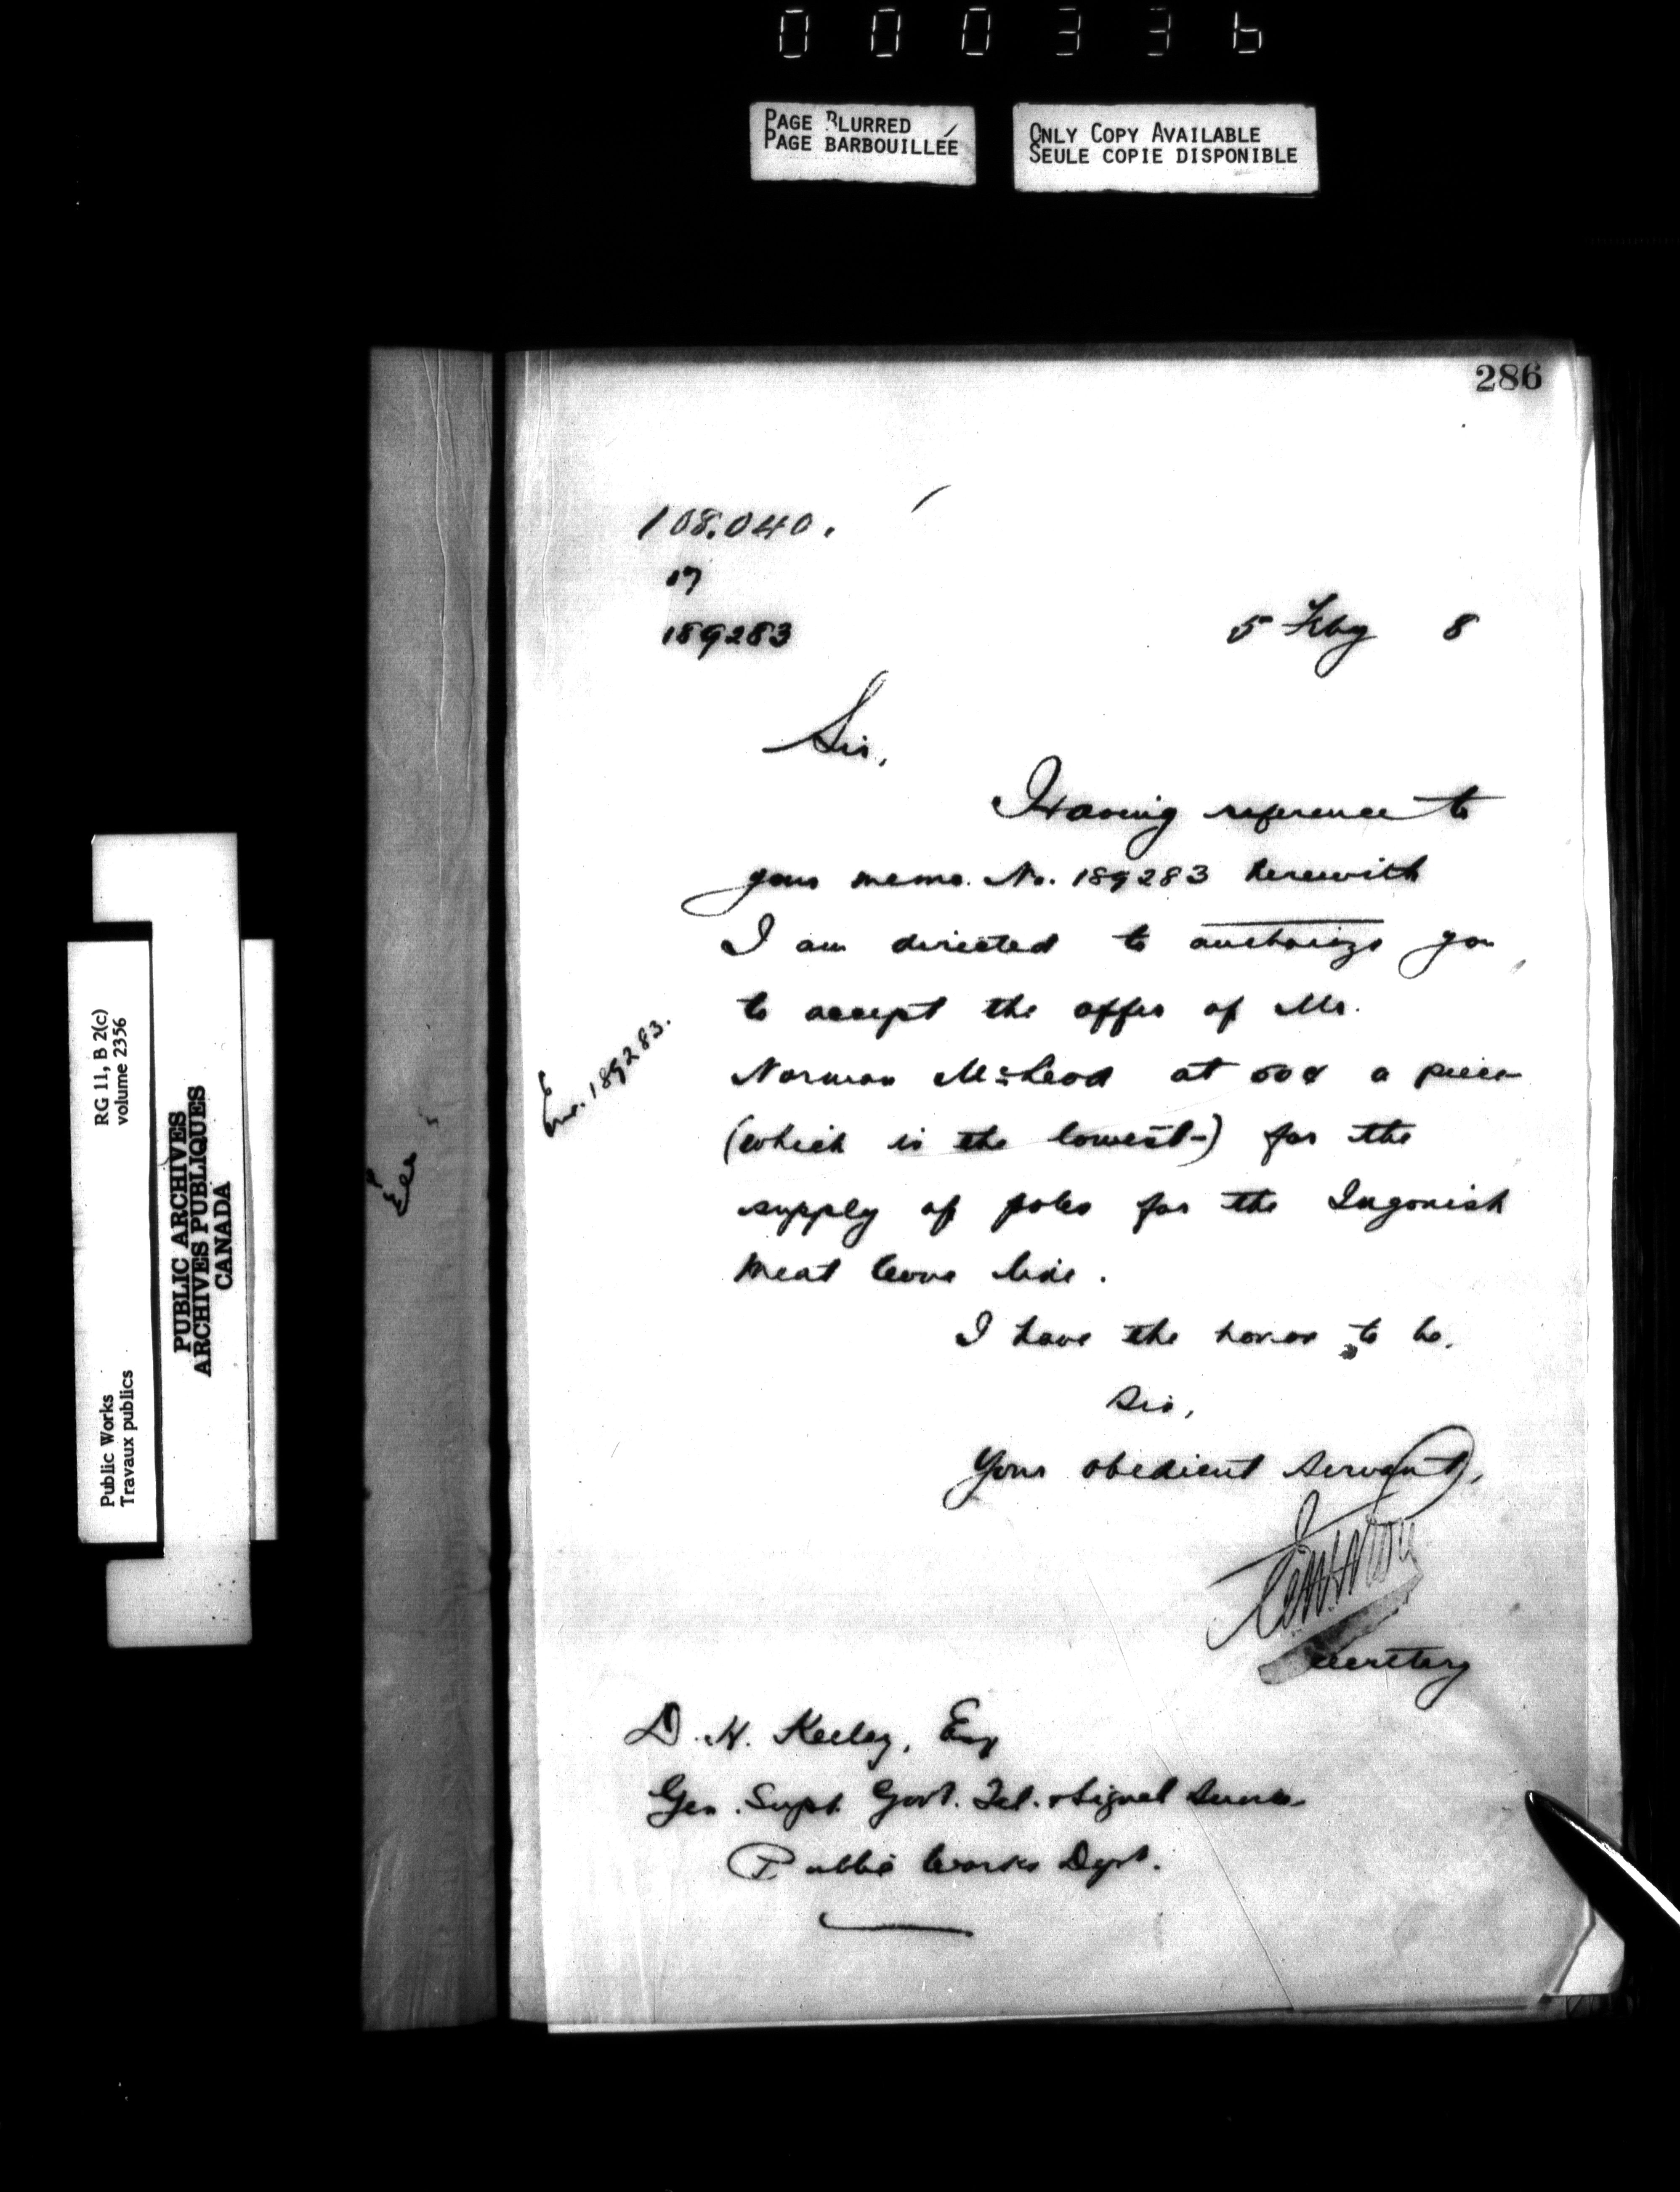 00033b
PAGE BLURRED
PAGE BARBOUILLÉE
ONLY COPY AVAILABLE
SEULE COPIE DISPONIBLE
286
108.040.
17
189283
5 Feby 8
Sir,
Having reference to
your memo. No. 189283 herewith
I am directed to authorize you
to accept the offer of Mr.
Norman McLeod at a piece
(which is the lowest) for the
supply of poles for the Ingonish
Meat Cove line.
I have the honor to be,
Sir,
Your obedient servant,
Secretary
D. H. Keeley, Esq
Gen. Supt. Govt. Tel. & Signal Service
Public Works Dept.
189283.
RG 11, B 2(c)
volume 2356
Public Works
Travaux publics
PUBLIC ARCHIVES
ARCHIVES PUBLIQUES
CANADA